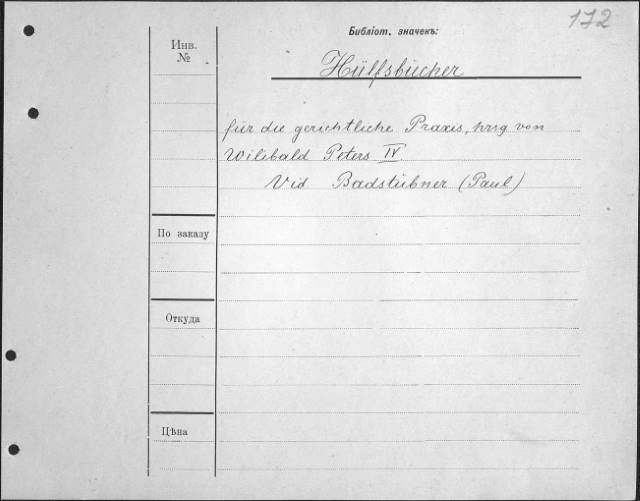 172
Библіот. значекъ:
Инв.
№
Hülfsbücher
für die gerichtliche Praxis, hrsg von
Wilibald Peters IV
Vid Badstübner (Paul)
По заказу
Откуда
Цѣна